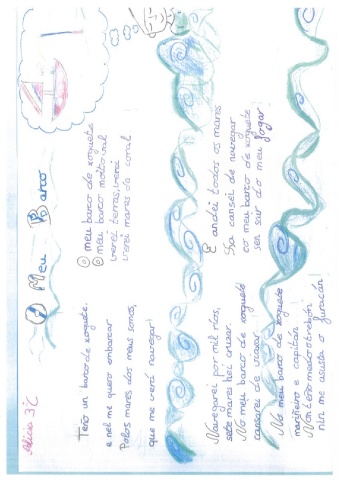 Alicia 3ºC
O Meu Barco
Teño un barco de xoguete.
e nel me quero embarcar
Polos mares dos meus somos,
que me verá navegar!
O meu barco de xoguete
O meu barco moito val
verei terras, verei
verei mares de coral
Navegarei por mil ríos,
sete mares hei cruzar.
No meu barco de xoguete
cansarei de viaxar
E andei todos os mares
Xa cansei de navegar
co meu barco de xoguete
sen saír do meu fogar!
No meu barco de xoguete
mariñeiro e capitán
Non teño medo
nin me asusta o furacán